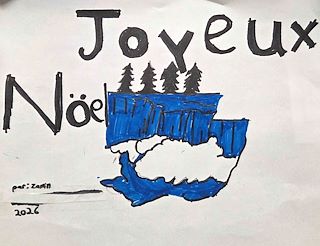 Joyeux
Nöel
par: Zamin
2026